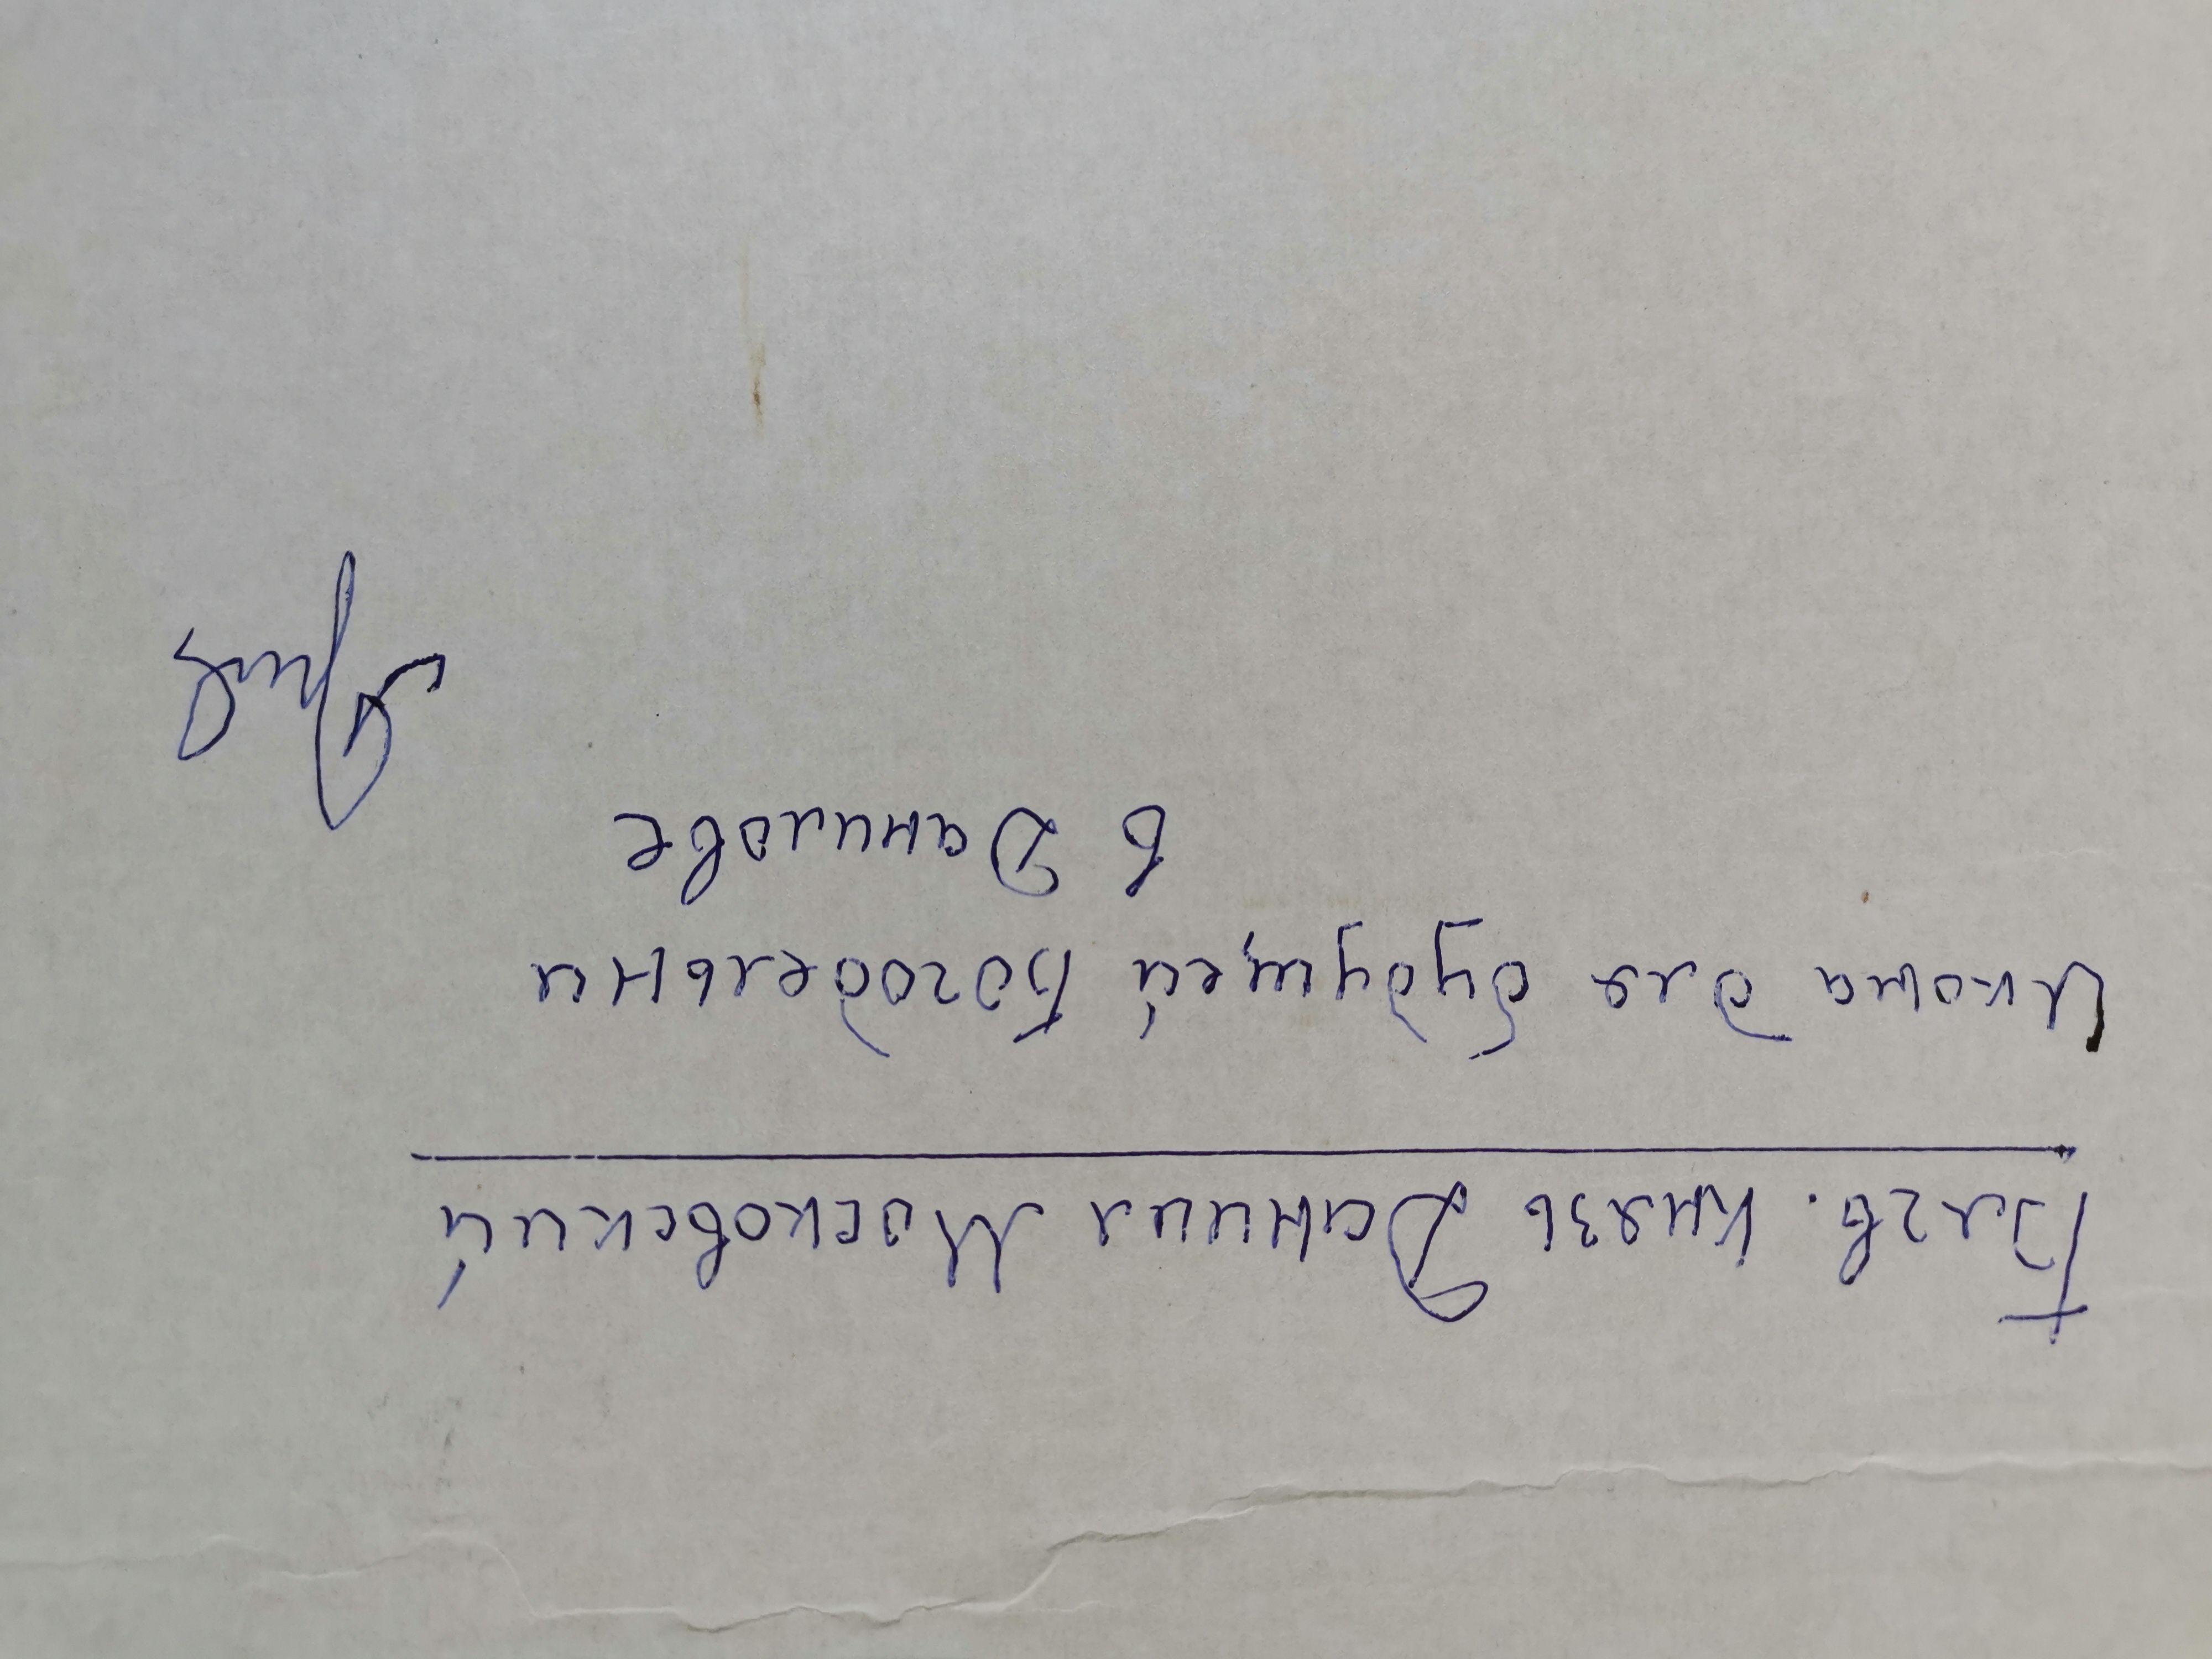 Блгв. князь Даниил Московский
Икона для будущей Богодельни
в Данилове